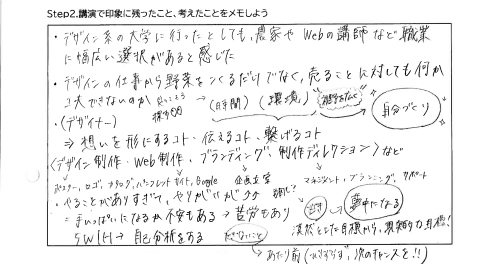 Step2.講演で印象に残ったこと、考えたことをメモしよう
・デザイン系の大学に行ったとしても、農家やWebの講師など職業
に幅広い選択があると感じた
・デザインの仕事から野菜をつくるだけでなく、売ることに対しても何か
工夫できないのか
(時間) (環境)
自分づくり
・(デザイナー)
⇒ 想いを形にするコト・伝えるコト、繋げるコト
(デザイン制作・Web制作・ブランディング・制作ディレクション)など
ポスター、ロゴ、カタログ、パンフレット サイト、Google 企画立案 マネジメント、プランニング、サポート
・やることがありすぎて、やりがいが
=手いっぱいになるか不安もある→苦労もあり
夢中になる
漠然とした目標から、現実的な目標!
5W1H→自己分析をする
できないこと
あたり前 次のチャンスを!!